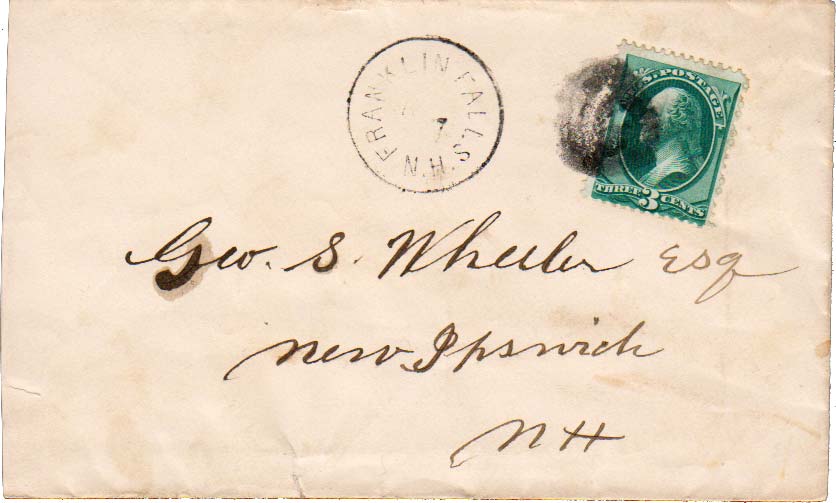 FRANKLIN FALLS. N.H.
7
U.S. POSTAGE
THREE 3 CENTS
Geo. S. Wheeler Esq
New Ipswich
NH